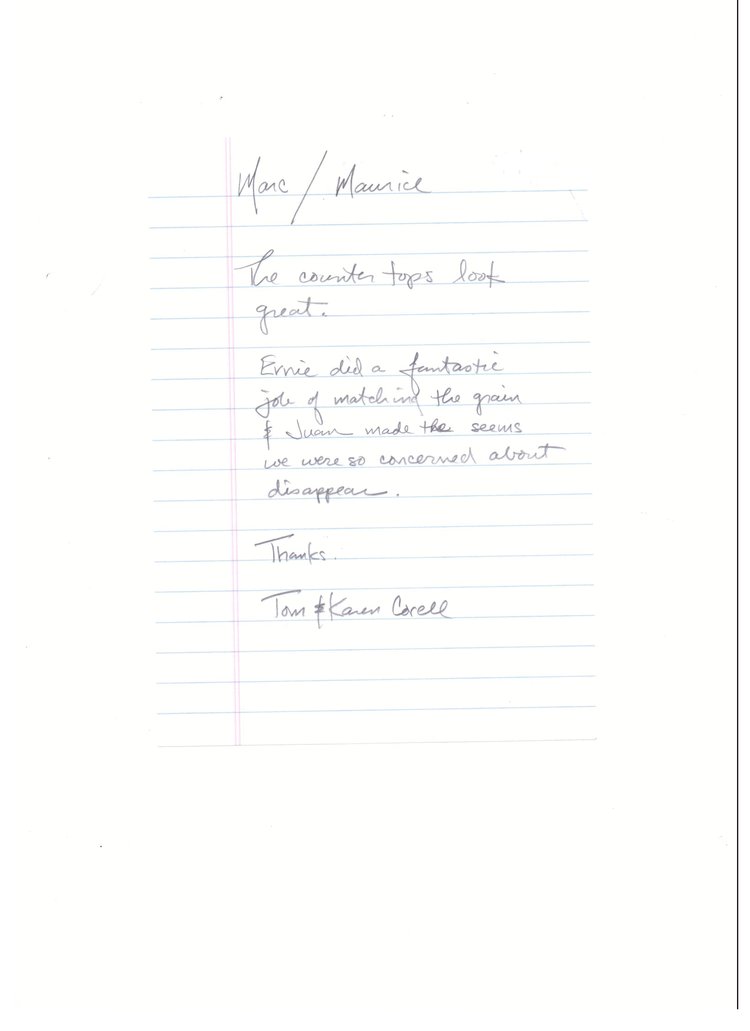 Marc / Maurice
The counter tops look
great.
Ernie did a fantastic
job of matching the grain
& Juan made the seems
we were so concerned about
disappear.
Thanks.
Tom & Karen Corell